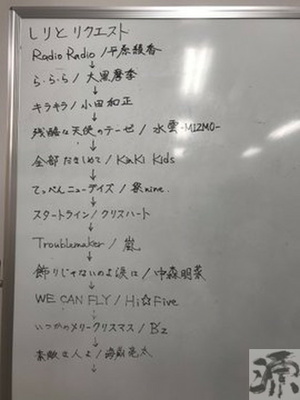 しりとりクエスト
Radio Radio / 平原綾香
↓
ら・ら・ら / 大黒摩季
↓
キラキラ / 小田和正
↓
残酷な天使のテーゼ / 水雲-MIZMO-
↓
全部だきしめて / KinKi Kids
↓
てっぺんニューデイズ / 祭nine.
↓
スタートライン / クリスハート
↓
Troublemaker / 嵐
↓
飾りじゃないのよ涙は / 中森明菜
↓
WE CAN FLY / Hi☆Five
↓
いつかのメリークリスマス / B'z
↓
素敵な人よ / 海蔵亮太
↓
源